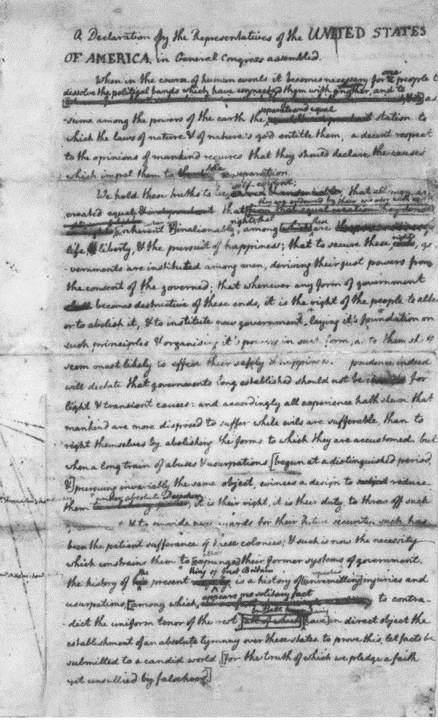 A Declaration by the Representatives of the UNITED STATES
OF AMERICA, in General Congress assembled.
When in the course of human events it becomes necessary for one people to
dissolve the political bands which have connected them with another, and to
as
sume among the powers of the earth the separate and equal station to
which the laws of nature & of nature's god entitle them, a decent respect
to the opinions of mankind requires that they should declare the causes
which impel them to the separation.
We hold these truths to be self-evident; that all men are
created equal that they are endowed by their creator with
rights; that these
life, liberty, & the pursuit of happiness; that to secure these rights, go
vernments are instituted among men, deriving their just powers from
the consent of the governed; that whenever any form of government
becomes destructive of these ends, it is the right of the people to alter
or to abolish it, & to institute new government, laying it's foundation on
such principles & organising it's powers in such form, as to them shall
seem most likely to effect their safety & happiness. prudence indeed
will dictate that governments long established should not be changed for
light & transient causes: and accordingly all experience hath shewn that
mankind are more disposed to suffer while evils are sufferable, than to
right themselves by abolishing the forms to which they are accustomed. but
when a long train of abuses & usurpations [begun at a distinguished period,
& pursuing invariably the same object, evinces a design to reduce
them under absolute Despotism, it is their right, it is their duty, to throw off such
& to provide new guards for their future security. such has
been the patient sufferance of these colonies; & such is now the necessity
which constrains them to [expunge] their former systems of government.
the history of the present king of Great Britain is a history of [unremitting] injuries and
usurpations, [among which, appears no solitary fact to contra-
dict the uniform tenor of the rest [all of which] [have] in direct object the
establishment of an absolute tyranny over these states. to prove this, let facts be
submitted to a candid world [for the truth of which we pledge a faith
yet unsullied by falsehood]